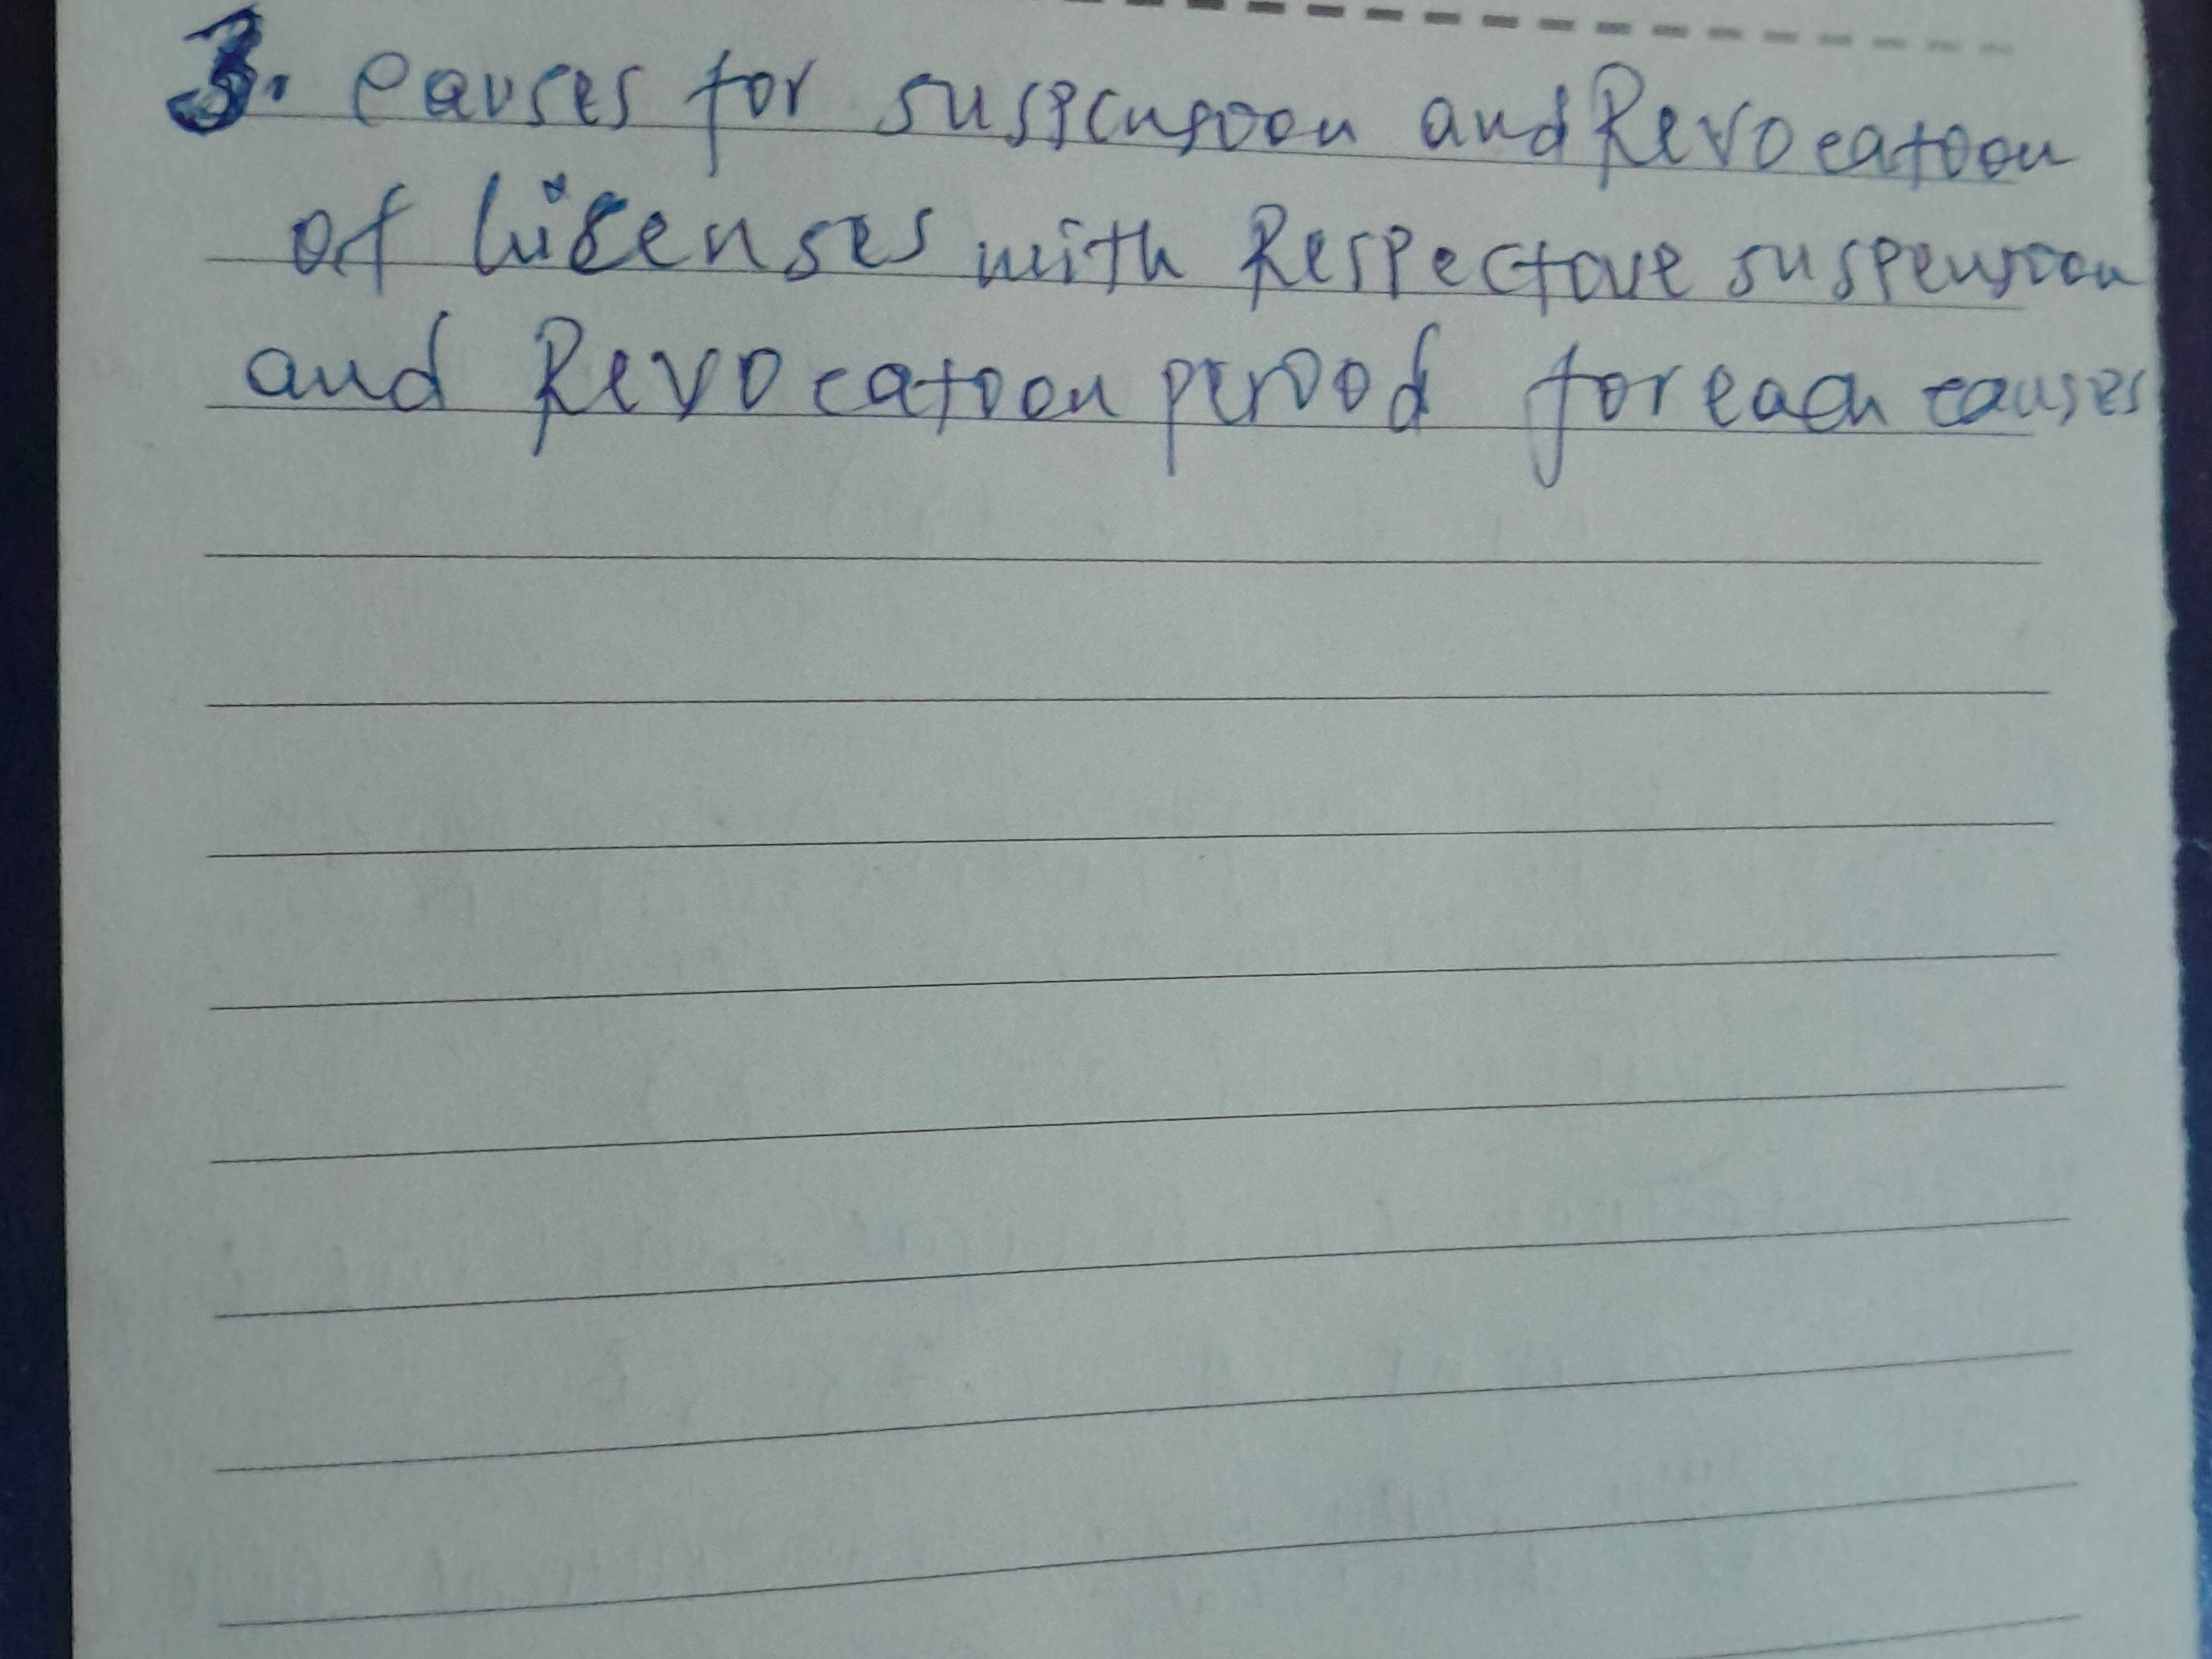 3. causes for suspension and Revocation
of licenses with Respective suspension
and Revocation period for each causes